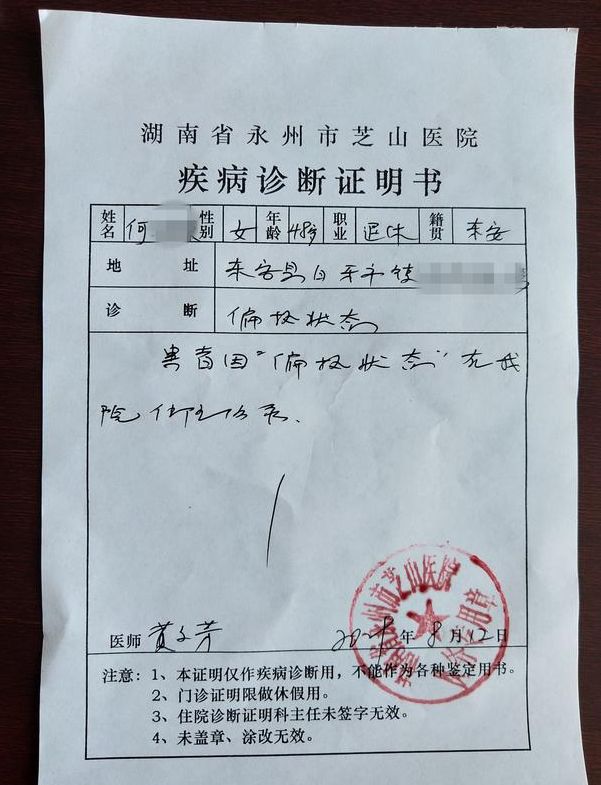 湖南省永州市芝山医院
疾病诊断证明书
姓名 何 性别 女 年龄 48岁 职业 退休 籍贯 东安
地址 东安县白牙市镇
诊断 偏执状态
患者因“偏执状态”在我
院住院治疗.
医师 黄文芳 年8月12日
注意：1、本证明仅作疾病诊断用，不能作为各种鉴定用书。
2、门诊证明限做休假用。
3、住院诊断证明科主任未签字无效。
4、未盖章、涂改无效。
州市芝山医院